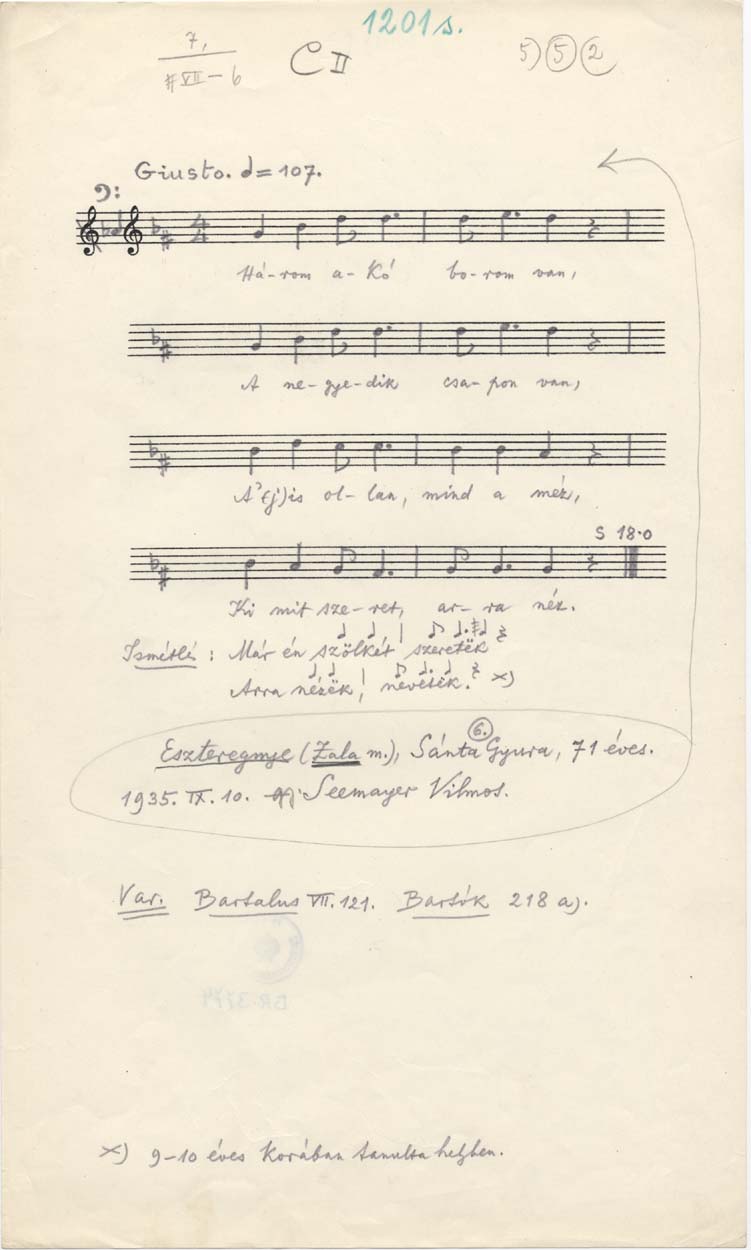 1201s.
7,
#VII-6
C II
5) 5 2
Giusto. = 107.
4
4
Há-rom a-kó bo-rom van,
A ne-gye-dik csa-pon van,
A'(j)is ol-lan, mind a méz,
S 18·0
Ki mit sze-ret, ar-ra néz.
Ismétlé: Már én szölkét szeretëk
Arra nézëk, nevetëk. x)
6.
Eszteregnye (Zala m.), Sánta Gyura, 71 éves.
1935. IX. 10. Seemayer Vilmos.
Var. Bartalus VII. 121. Bartók 218 a).
x) 9-10 éves korában tanulta helyben.